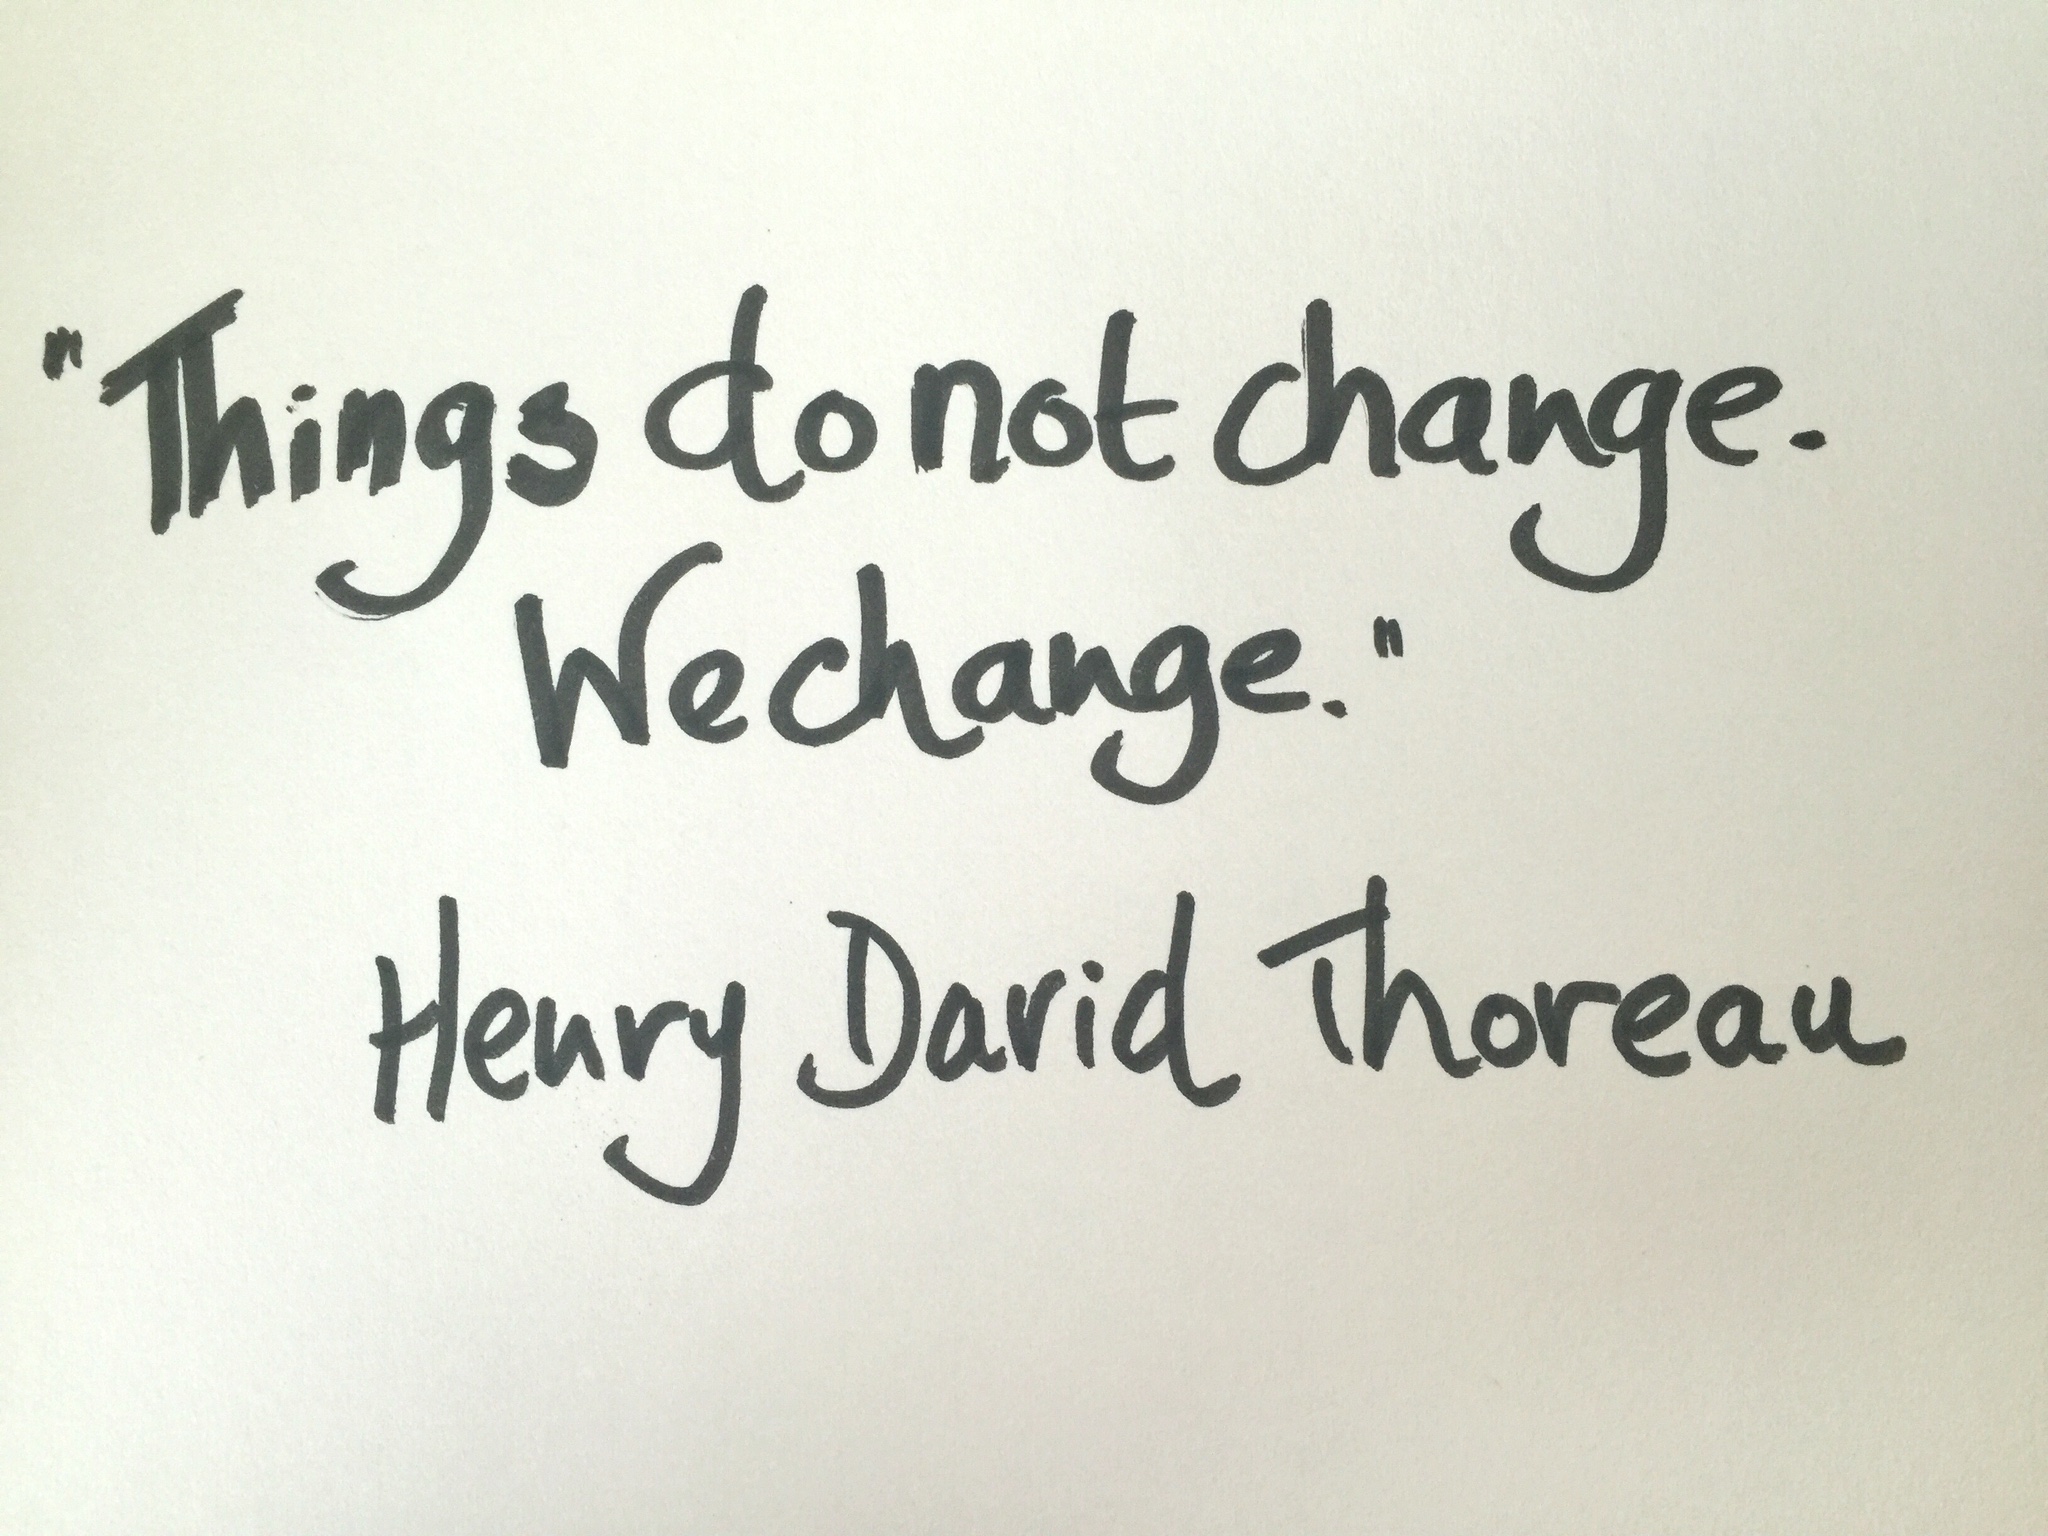 "Things do not change.
We change."
Henry David Thoreau